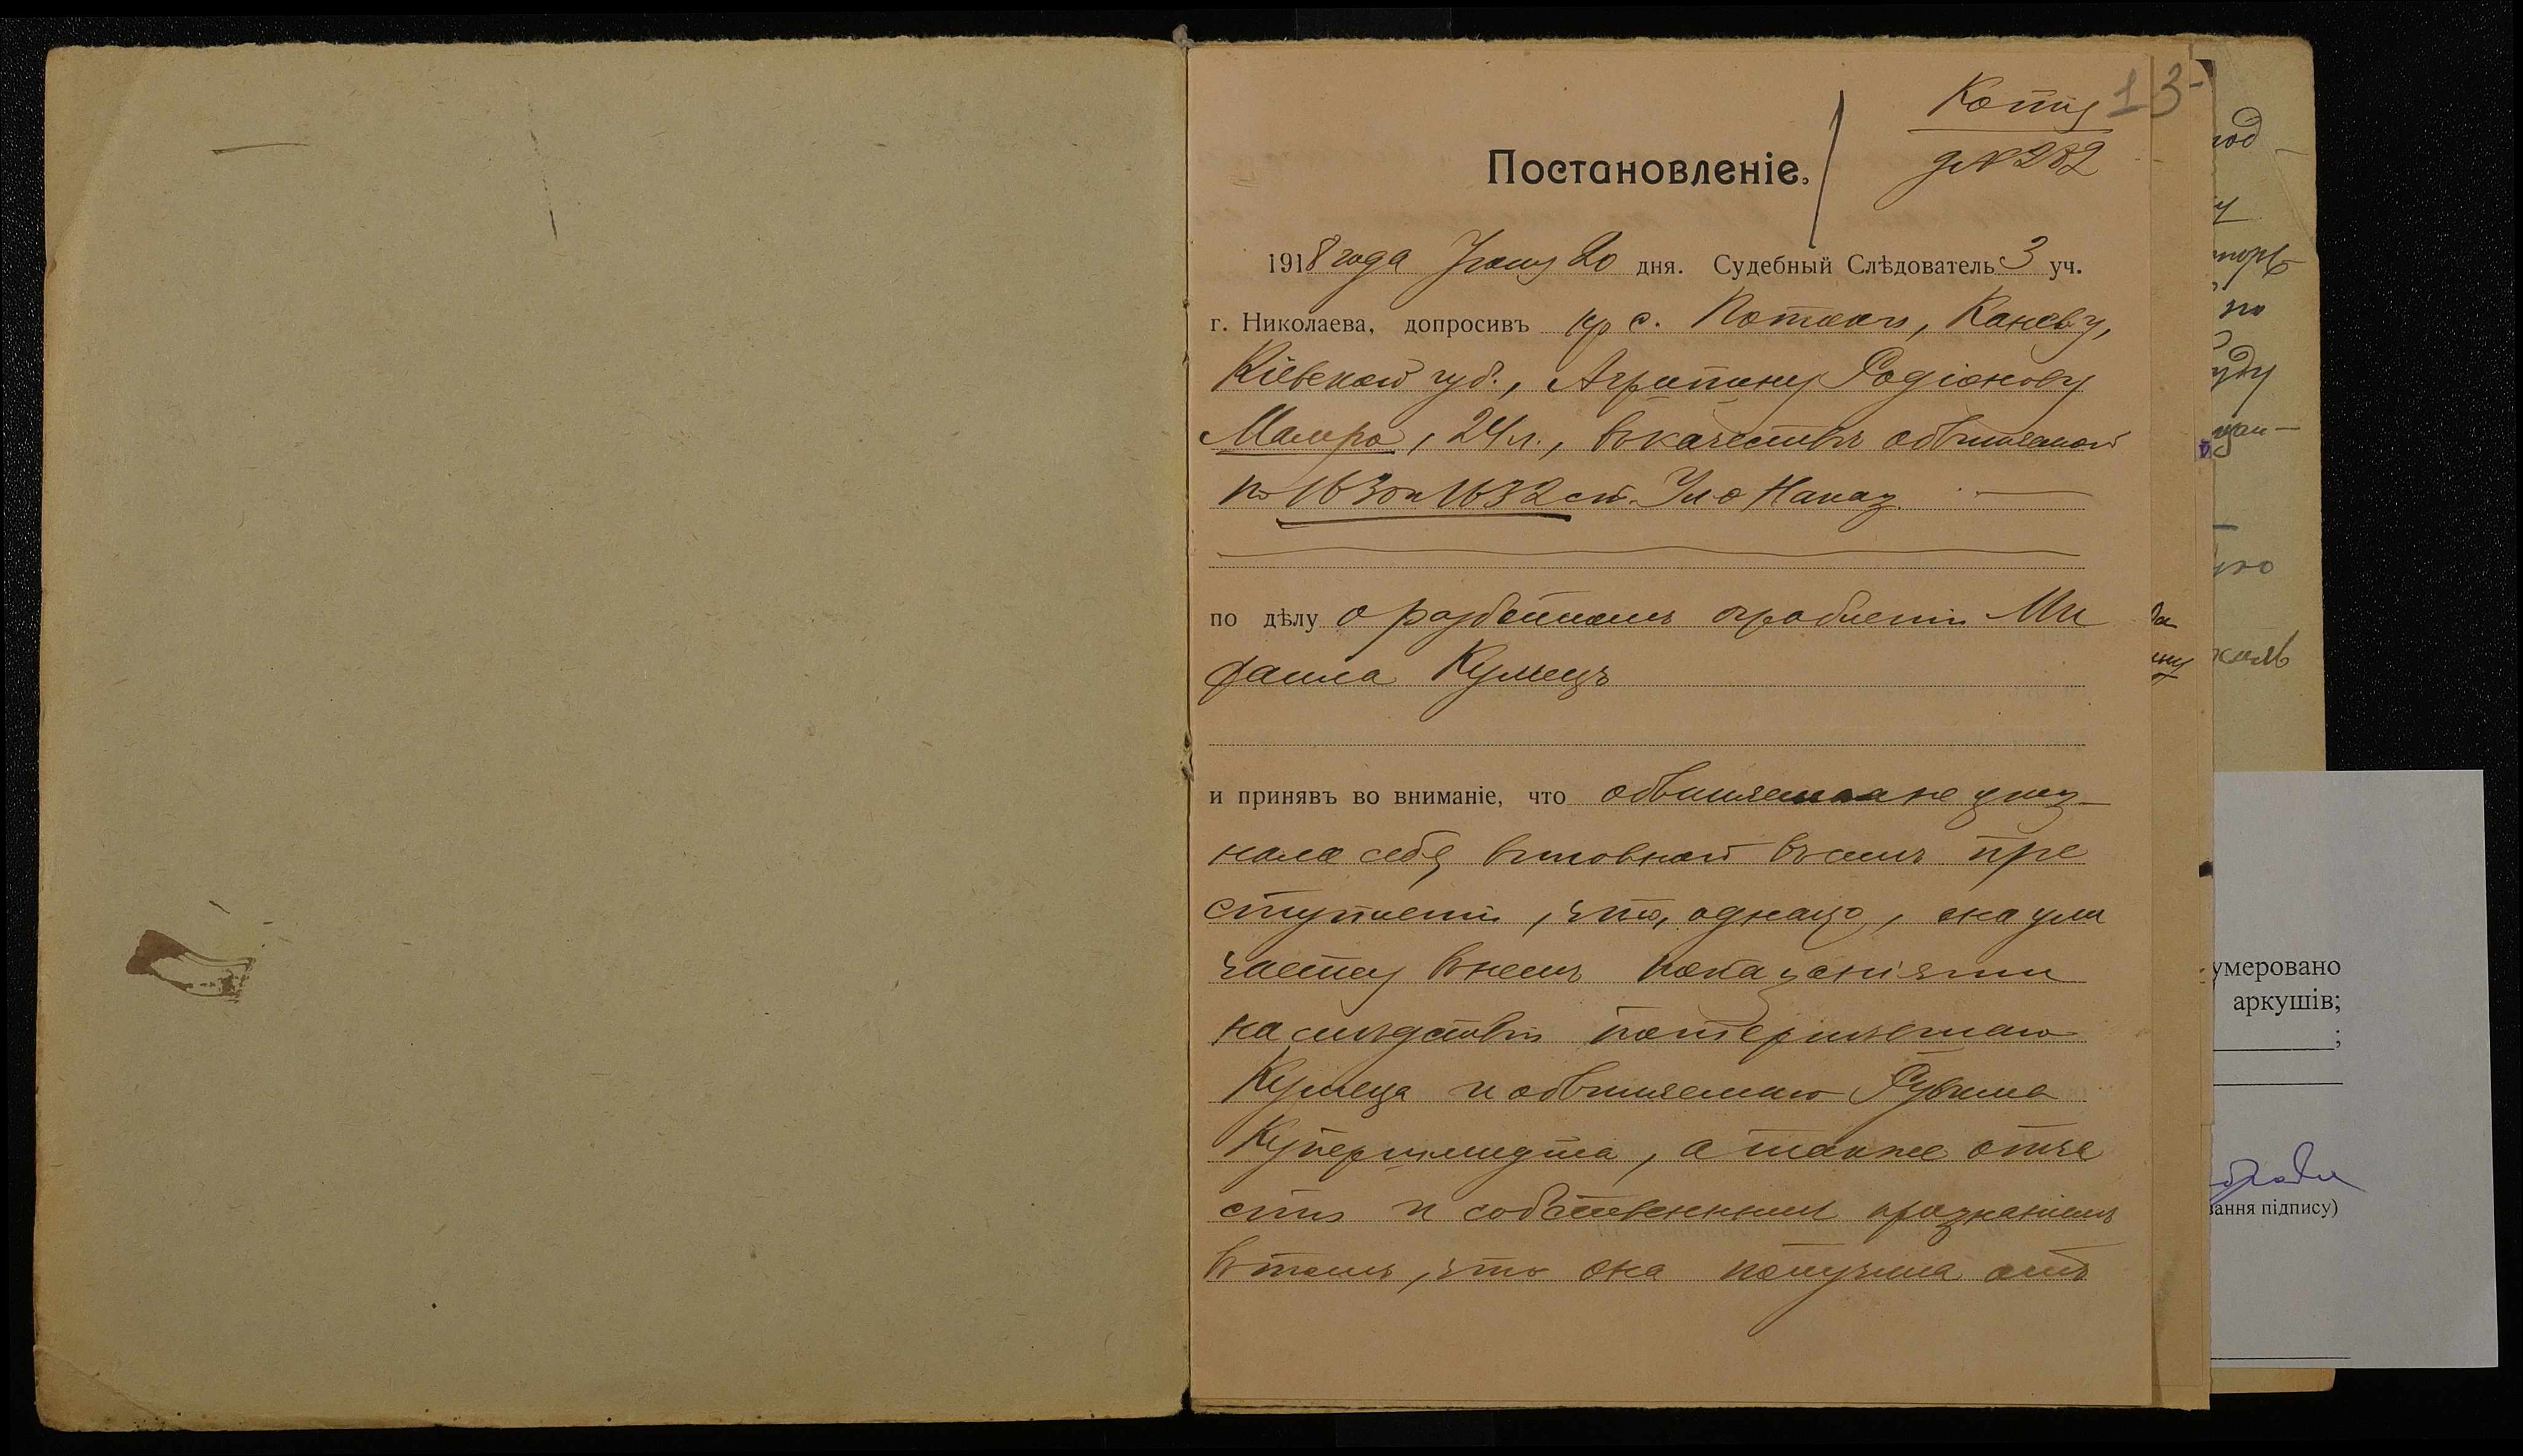 Копія
13
д № 282
Постановленіе.
1918 года Іюня 20 дня. Судебный Слѣдователь 3 уч.
г. Николаева, допросивъ кр. с. Потокъ, Канев. у,
Кіевской губ., Агрипину Родіонову
Мамро, 24 л., въ качествѣ обвиняемой
по 1630 и 1632 ст. Ул о Наказ.
по дѣлу о разбойномъ ограбленіи Ми
хаила Кумецъ
и принявъ во вниманіе, что обвиняемая не приз-
нала себя виновной въ семъ пре
ступленіи, что, однако, она ули
чается въ немъ показаніями
на слѣдствіи потерпѣвшаго
Кумеца и обвиняемаго Рувима
Купершмидта, а также отча
сти и собственнымъ признаніемъ
въ томъ, что она получила отъ
под
у
по
уду
да
ену
умеровано
аркушів;
;
вання підпису)